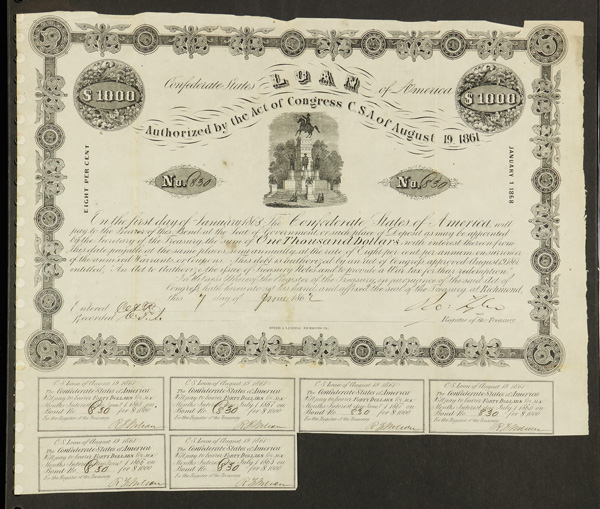 LOAN
Confederate States of America
$1000 $1000
Authorized by the Act of Congress C.S.A of August 19, 1861
EIGHT PER CENT
JANUARY 1 1868
No. 830 No. 830
On the first day of January 1868 The Confederate States of America will
pay to the Bearer of this Bond, at the Seat of Government, or such place of Deposit as may be appointed
by the Secretary of the Treasury, the sum of One Thousand Dollars, with interest thereon from
this date payable at the same place semi-annually, at the rate of Eight per cent. per annum on surrender
of the annexed Warrants or Coupons. This debt is authorized by an Act of Congress approved August 19, 1861,
entitled, "An Act to Authorize the issue of Treasury Notes and to provide a War tax for their redemption."
In Witness Whereof the Register of the Treasury, in pursuance of the said Act of
Congress, hath hereunto set his hand and affixed the seal of the Treasury, at Richmond,
this 7 day of June 1862
Entered
Recorded
Ro. Tyler
Register of the Treasury
C.S. Loan of August 19 1861
The Confederate States of America
Will pay to bearer FORTY DOLLARS for six
Months Interest due
Bond No. 830 for $1000
For the Register of the Treasury
C.S. Loan of August 19 1861
The Confederate States of America
Will pay to bearer FORTY DOLLARS for six
Months Interest due July 1 on
Bond No. 830 for $1000
For the Register of the Treasury
C.S. Loan of August 19 1861
The Confederate States of America
Will pay to bearer FORTY DOLLARS for six
Months Interest due on
Bond No. 830 for $1000
For the Register of the Treasury
C.S. Loan of August 19 1861
The Confederate States of America
Will pay to bearer FORTY DOLLARS for six
Months Interest due July 1 on
Bond No. 830 for $1000
For the Register of the Treasury
C.S. Loan of August 19 1861
The Confederate States of America
Will pay to bearer FORTY DOLLARS for six
Months Interest due on
Bond No. 830 for $1000
For the Register of the Treasury
C.S. Loan of August 19 1861
The Confederate States of America
Will pay to bearer FORTY DOLLARS for six
Months Interest due July 1 on
Bond No. 830 for $1000
For the Register of the Treasury